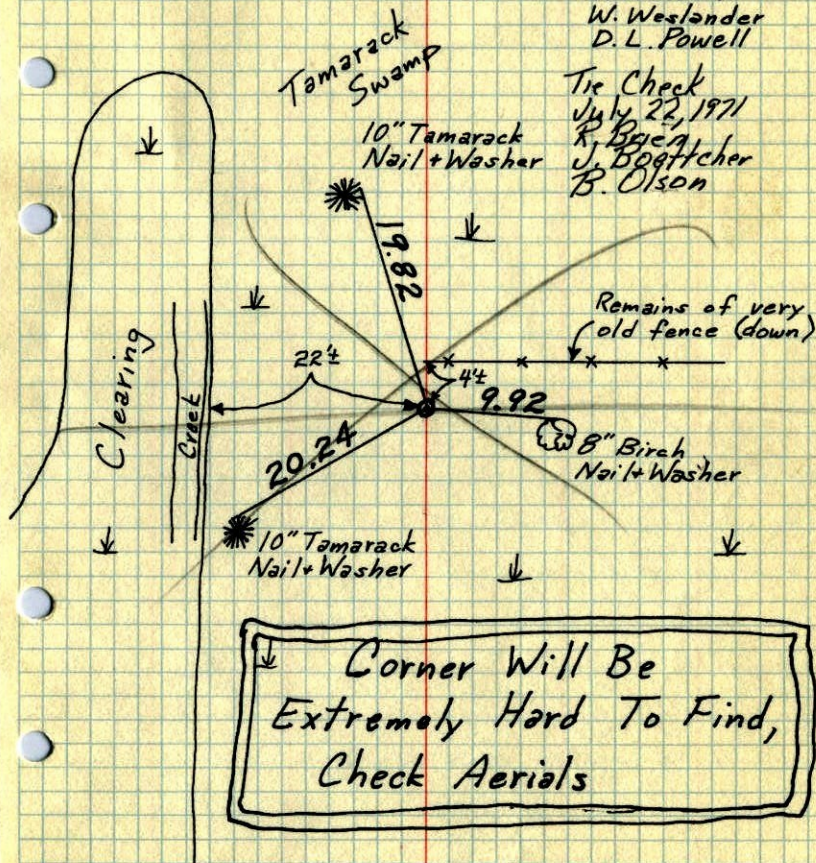 W. Weslander
D. L. Powell
Tie Check
July 22, 1971
R. Brien
J. Boettcher
B. Olson
Tamarack
Swamp
10" Tamarack
Nail + Washer
19.82
Remains of very
old fence (down)
22'±
4'±
9.92
Clearing
Creek
8" Birch
Nail + Washer
20.24
10" Tamarack
Nail + Washer
Corner Will Be
Extremely Hard To Find,
Check Aerials